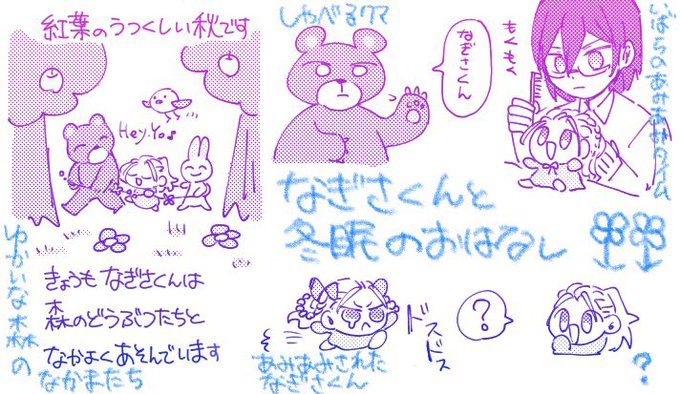 紅葉のうつくしい秋です
Hey,Yo♪
きょうもなぎさくんは
森のどうぶつたちと
なかよくあそんでいます
ゆかいな森の
なかまたち
しゃべるクマ
なぎさくん
もくもく
いばらのあみあみタイム
なぎさくんと
冬眠のおはなし
ドスドス
あみあみされた
なぎさくん
?
?